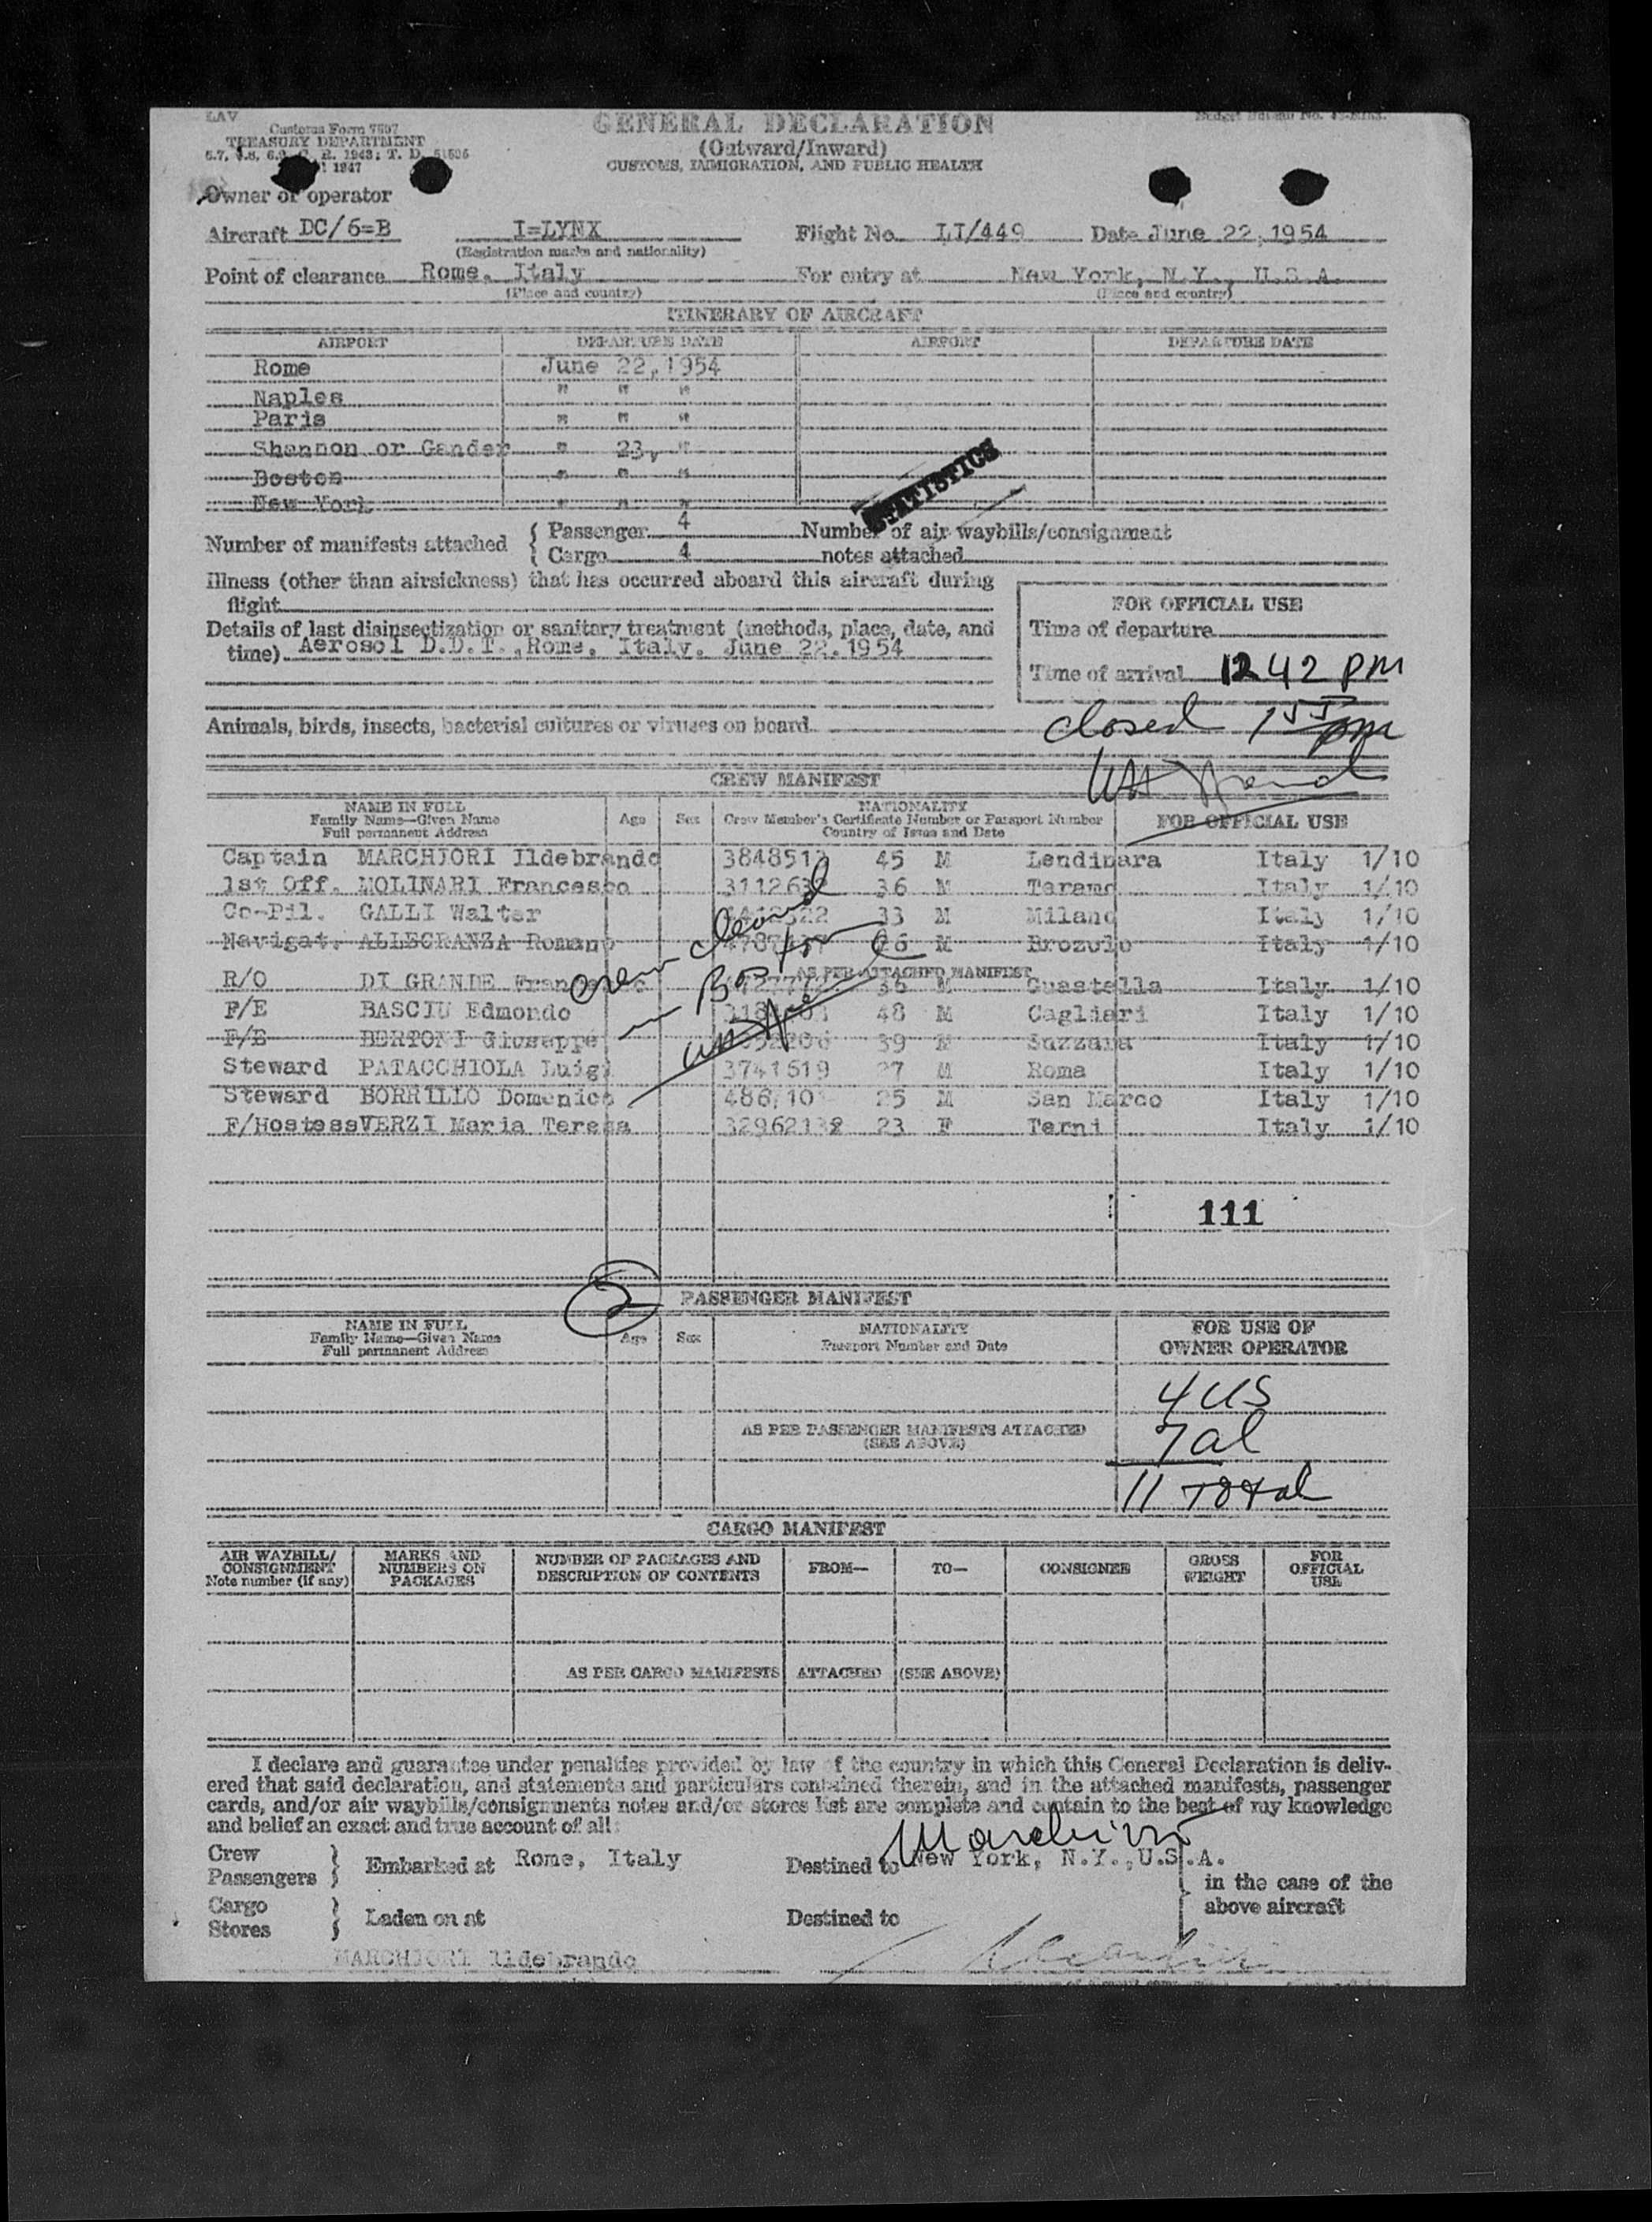 LAV
Customs Form 7507
TREASURY DEPARTMENT
1947
GENERAL DECLARATION
(Outward/Inward)
CUSTOMS, IMMIGRATION, AND PUBLIC HEALTH
Owner or operator
Aircraft DC/6=B I=LYNX Flight No. LI/449 Date June 22, 1954
(Registration marks and nationality)
Point of clearance Rome, Italy For entry at New York, N.Y., U.S.A.
(Place and country) (Place and country)
ITINERARY OF AIRCRAFT
AIRPORT DEPARTURE DATE AIRPORT DEPARTURE DATE
Rome June 22, 1954
Naples " " "
Paris " " "
Shannon or Gander " 23, "
Boston " " "
New York " " "
STATISTICS
Number of manifests attached { Passenger 4 Number of air waybills/consignment
Cargo 4 notes attached
Illness (other than airsickness) that has occurred aboard this aircraft during
flight
Details of last disinsectization or sanitary treatment (methods, place, date, and
time) Aerosol D.D.T., Rome, Italy. June 22.1954
FOR OFFICIAL USE
Time of departure
Time of arrival 12 42 PM
Animals, birds, insects, bacterial cultures or viruses on board.
closed 1 55 pm
CREW MANIFEST
NAME IN FULL NATIONALITY
Family Name—Given Name Age Sex Crew Member's Certificate Number or Passport Number FOR OFFICIAL USE
Full permanent Address Country of Issue and Date
Captain MARCHIORI Ildebrando 45 M Lendinara Italy 1/10
1st Off. MOLINARI Francesco 36 M Teramo Italy 1/10
Co-Pil. GALLI Walter 33 M Milano Italy 1/10
Navigat. ALLEGRANZA Romano 26 M Brozolo Italy 1/10
AS PER ATTACHED MANIFEST
R/O DI GRANDE 36 M Guastella Italy 1/10
F/E BASCIU Edmondo 48 M Cagliari Italy 1/10
F/E BERTONI Giuseppe 39 M Suzzara Italy 1/10
Steward PATACCHIOLA Luigi 3741519 27 M Roma Italy 1/10
Steward BORRILLO Domenico 25 M San Marco Italy 1/10
F/Hostess VERZI Maria Teresa 23 F Terni Italy 1/10
crew cleared
in Boston
111
2
PASSENGER MANIFEST
NAME IN FULL NATIONALITY FOR USE OF
Family Name—Given Name Age Sex Passport Number and Date OWNER OPERATOR
Full permanent Address
4 US
AS PER PASSENGER MANIFESTS ATTACHED
(SEE ABOVE)
7 al
11 Total
CARGO MANIFEST
AIR WAYBILL/ CONSIGNMENT Note number (if any) MARKS AND NUMBERS ON PACKAGES NUMBER OF PACKAGES AND DESCRIPTION OF CONTENTS FROM— TO— CONSIGNEE GROSS WEIGHT FOR OFFICIAL USE
AS PER CARGO MANIFESTS ATTACHED (SEE ABOVE)
I declare and guarantee under penalties provided by law of the country in which this General Declaration is deliv-
ered that said declaration, and statements and particulars contained therein, and in the attached manifests, passenger
cards, and/or air waybills/consignments notes and/or stores list are complete and contain to the best of my knowledge
and belief an exact and true account of all:
Marchiori
Crew
Passengers } Embarked at Rome, Italy Destined to New York, N.Y., U.S.A.
in the case of the
above aircraft
Cargo
Stores } Laden on at Destined to
MARCHIORI Ildebrando